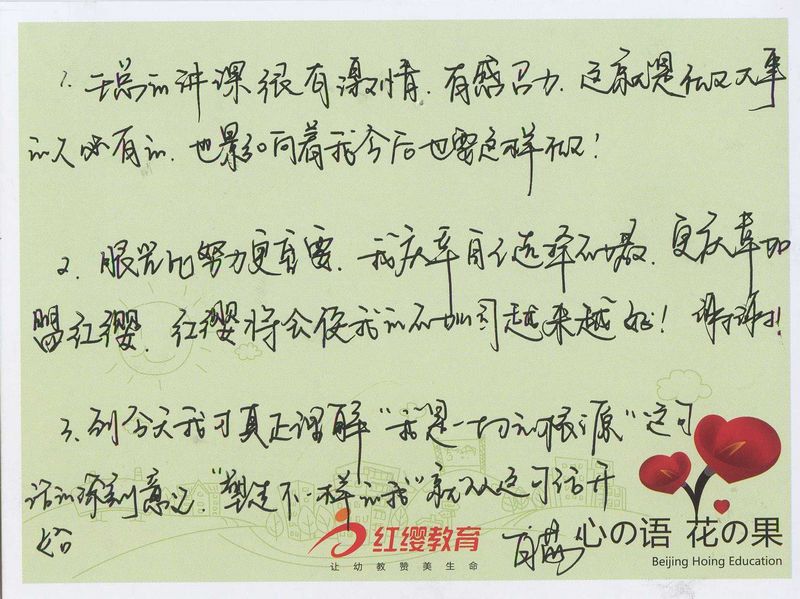 1. 王总的讲课很有激情，有感召力，这就是做大事
的人 有的，也影响着我今后也要这样做！
2. 眼光比努力更重要，我庆幸自己选择 ，更庆幸加
盟红缨，红缨将会使我的 越来越好！谢谢！
3. 到今天我才真正理解“我是一切的根源”这句
话的深刻意义，“塑造不一样的我”就从这句话开
始
红缨教育
让幼教赞美生命
心の语 花の果
Beijing Hoing Education